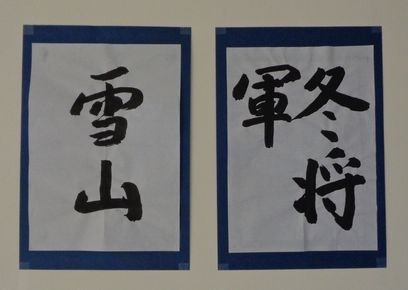 冬将
軍
雪山